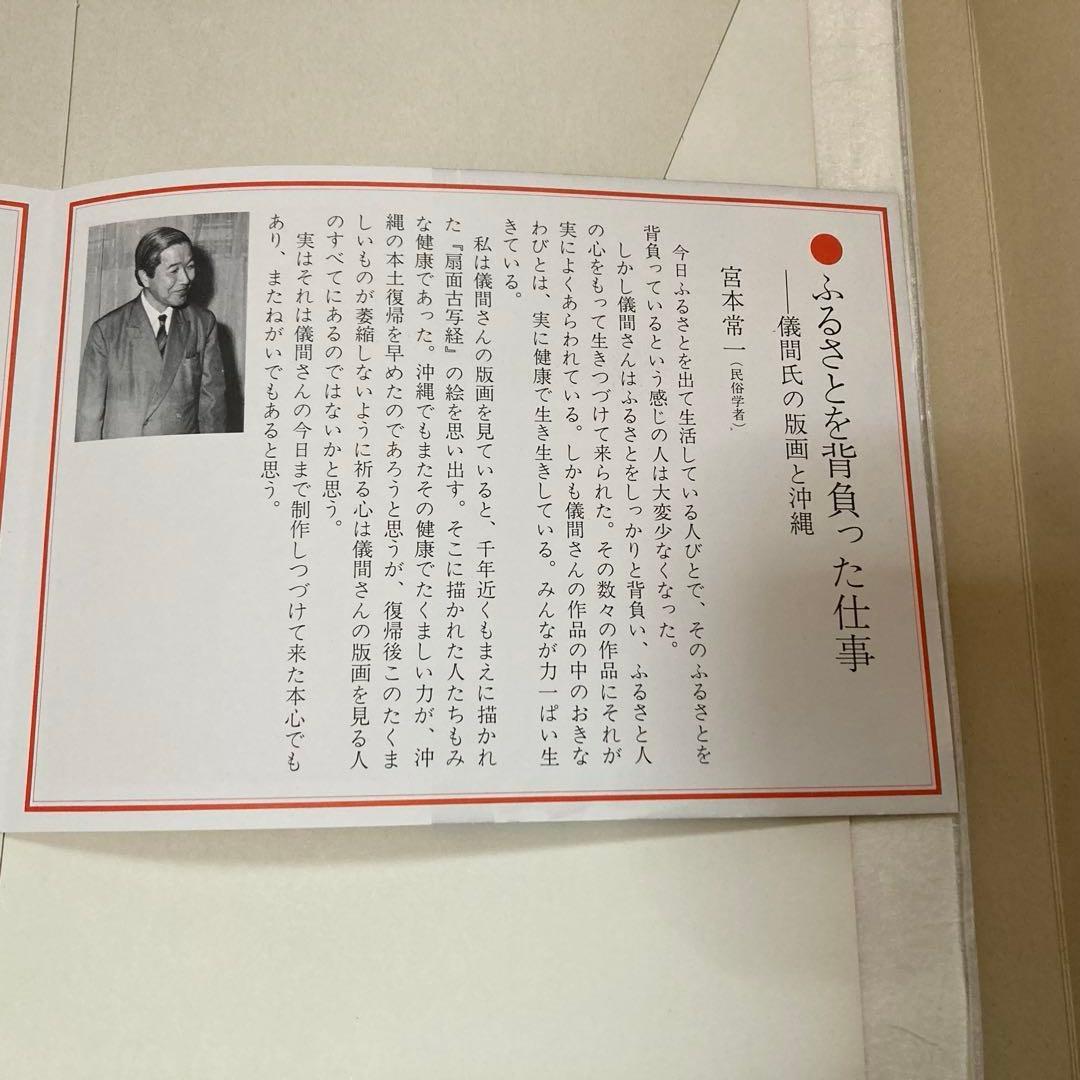 ●ふるさとを背負った仕事
――儀間氏の版画と沖縄
宮本常一(民俗学者)
今日ふるさとを出て生活している人びとで、そのふるさとを
背負っているという感じの人は大変少なくなった。
しかし儀間さんはふるさとをしっかりと背負い、ふるさと人
の心をもって生きつづけて来られた。その数々の作品にそれが
実によくあらわれている。しかも儀間さんの作品の中のおきな
わびとは、実に健康で生き生きしている。みんなが力一ぱい生
きている。
私は儀間さんの版画を見ていると、千年近くもまえに描かれ
た『扇面古写経』の絵を思い出す。そこに描かれた人たちもみ
な健康であった。沖縄でもまたその健康でたくましい力が、沖
縄の本土復帰を早めたのであろうと思うが、復帰後このたくま
しいものが萎縮しないように祈る心は儀間さんの版画を見る人
のすべてにあるのではないかと思う。
実はそれは儀間さんの今日まで制作しつづけて来た本心でも
あり、またねがいでもあると思う。